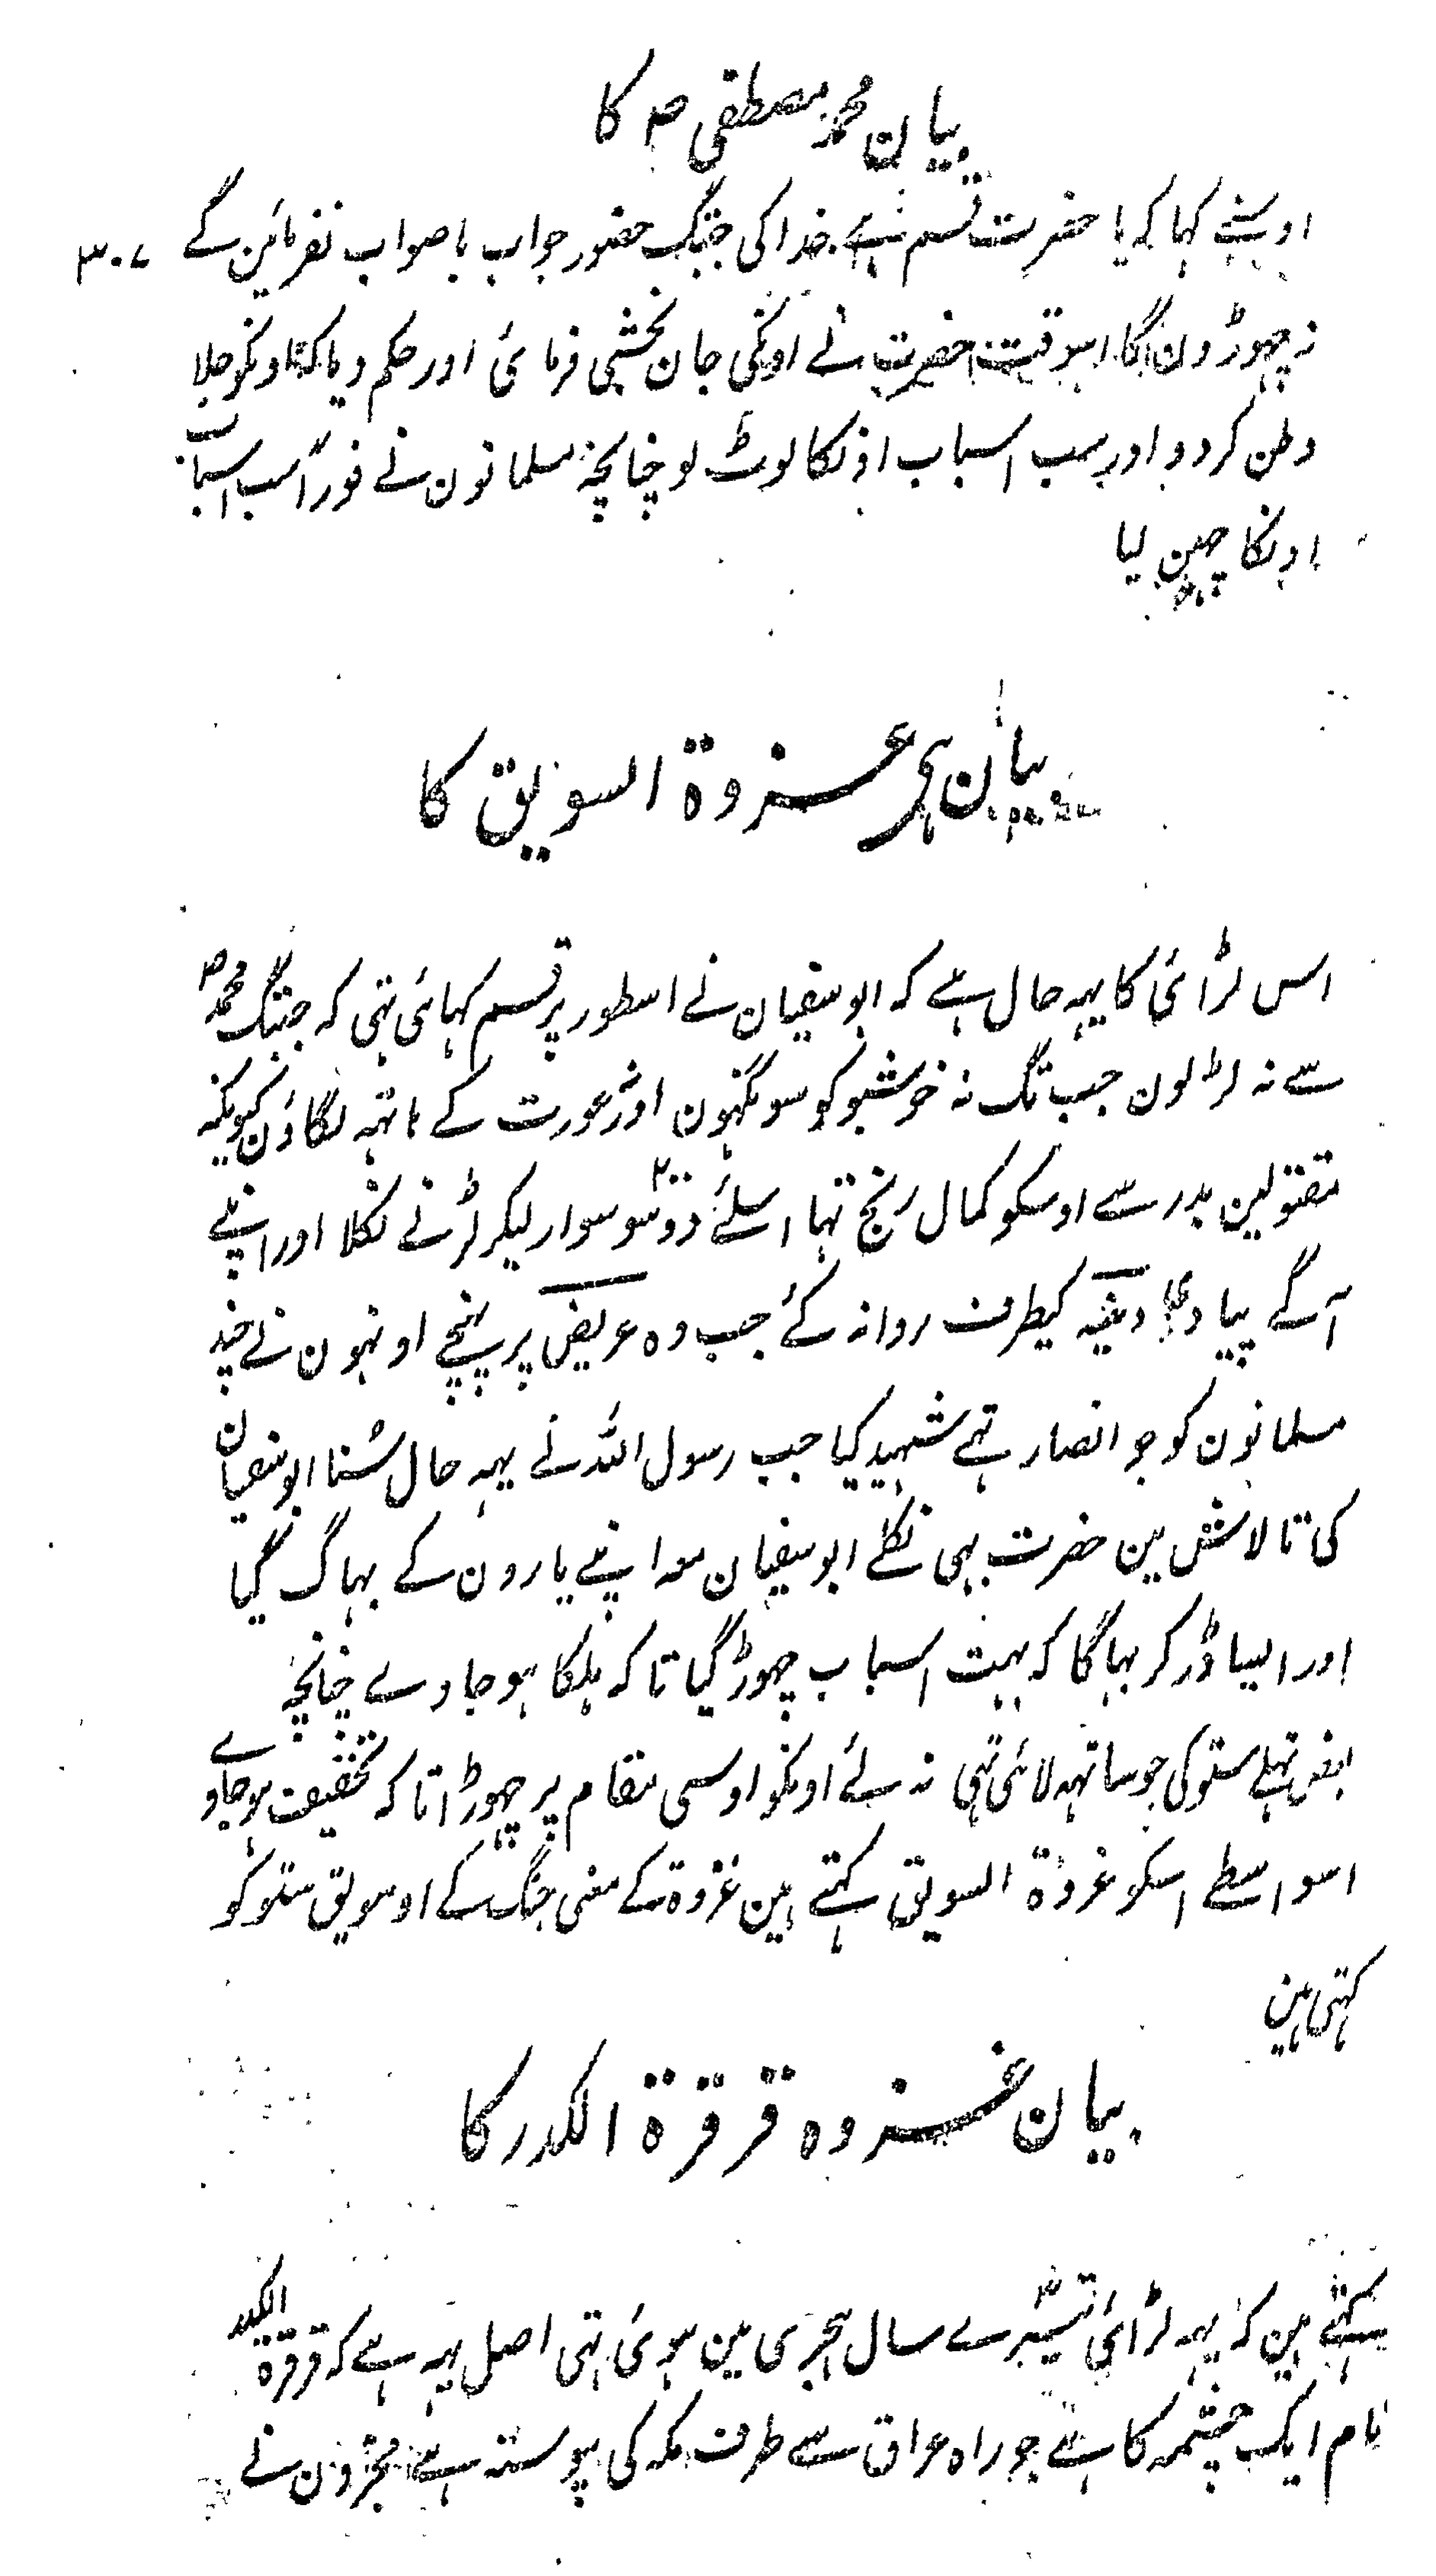 بیان محمد مصطفی ص کا
اوسنے کہا کہ یا حضرت قسم ہے خدا کی جبتک حضور جواب باصواب نفرمائین گے ۳۰۷
نہ چہوڑون گا اسوقت حضرت نے اونکی جان بخشی فرمائی اور حکم دیا کہ اونکو جلا
وطن کردو اور سب اسباب اونکا لوٹ لو چنانچہ مسلمانون نے فوراً سب اسباب
اونکا چہین لیا
بیان ہجر غزوة السویق کا
اس لڑائی کا یہہ حال ہے کہ ابوسفیان نے اسطور پر قسم کہائی تہی کہ جبتک محمد ص
سے نہ لڑ لون جب تک نہ خوشبو کو سونگہون اور نہ عورت کے ہاتہہ لگاؤن کیونکہ
مقتولین بدر سے اوسکو کمال رنج تہا اسلئے دو سو ۲۰۰ سوار لیکر لڑنے نکلا اور اپنے
آگے پیادے کیطرف روانہ کئے جب وہ عریض پر پہنچے اونہون نے چند
مسلمانون کو جو انصار تہے شہید کیا جب رسول اللہ نے یہہ حال سُنا ابوسفیان
کی تالاش مین حضرت بہی نکلے ابوسفیان معہ اپنے یارون کے بہاگ گیا
اور ایسا ڈر کر بہاگا کہ بہت اسباب چہوڑ گیا تاکہ ہلکا ہو جاوے چنانچہ
بعض تہیلے ستو کی جو ساتہہ لائی تہی نہ لئے اونکو اوسی مقام پر چہوڑا تاکہ تخفیف ہو جاوے
اسواسطے اسکو غزوة السویق کہتے ہین غزوة کے معنی جنگ کے اور سویق ستو کو
کہتی ہین
بیان غزوہ قرقرة الکدر کا
کہتے ہین کہ یہہ لڑائی تیسرے سال ہجری مین ہوئی تہی اصل یہہ ہے کہ قرقرة الکدر
نام ایک چشمہ کا ہے جو راہ عراق سے طرف مکہ کی پیوستہ ہے مخبرون نے